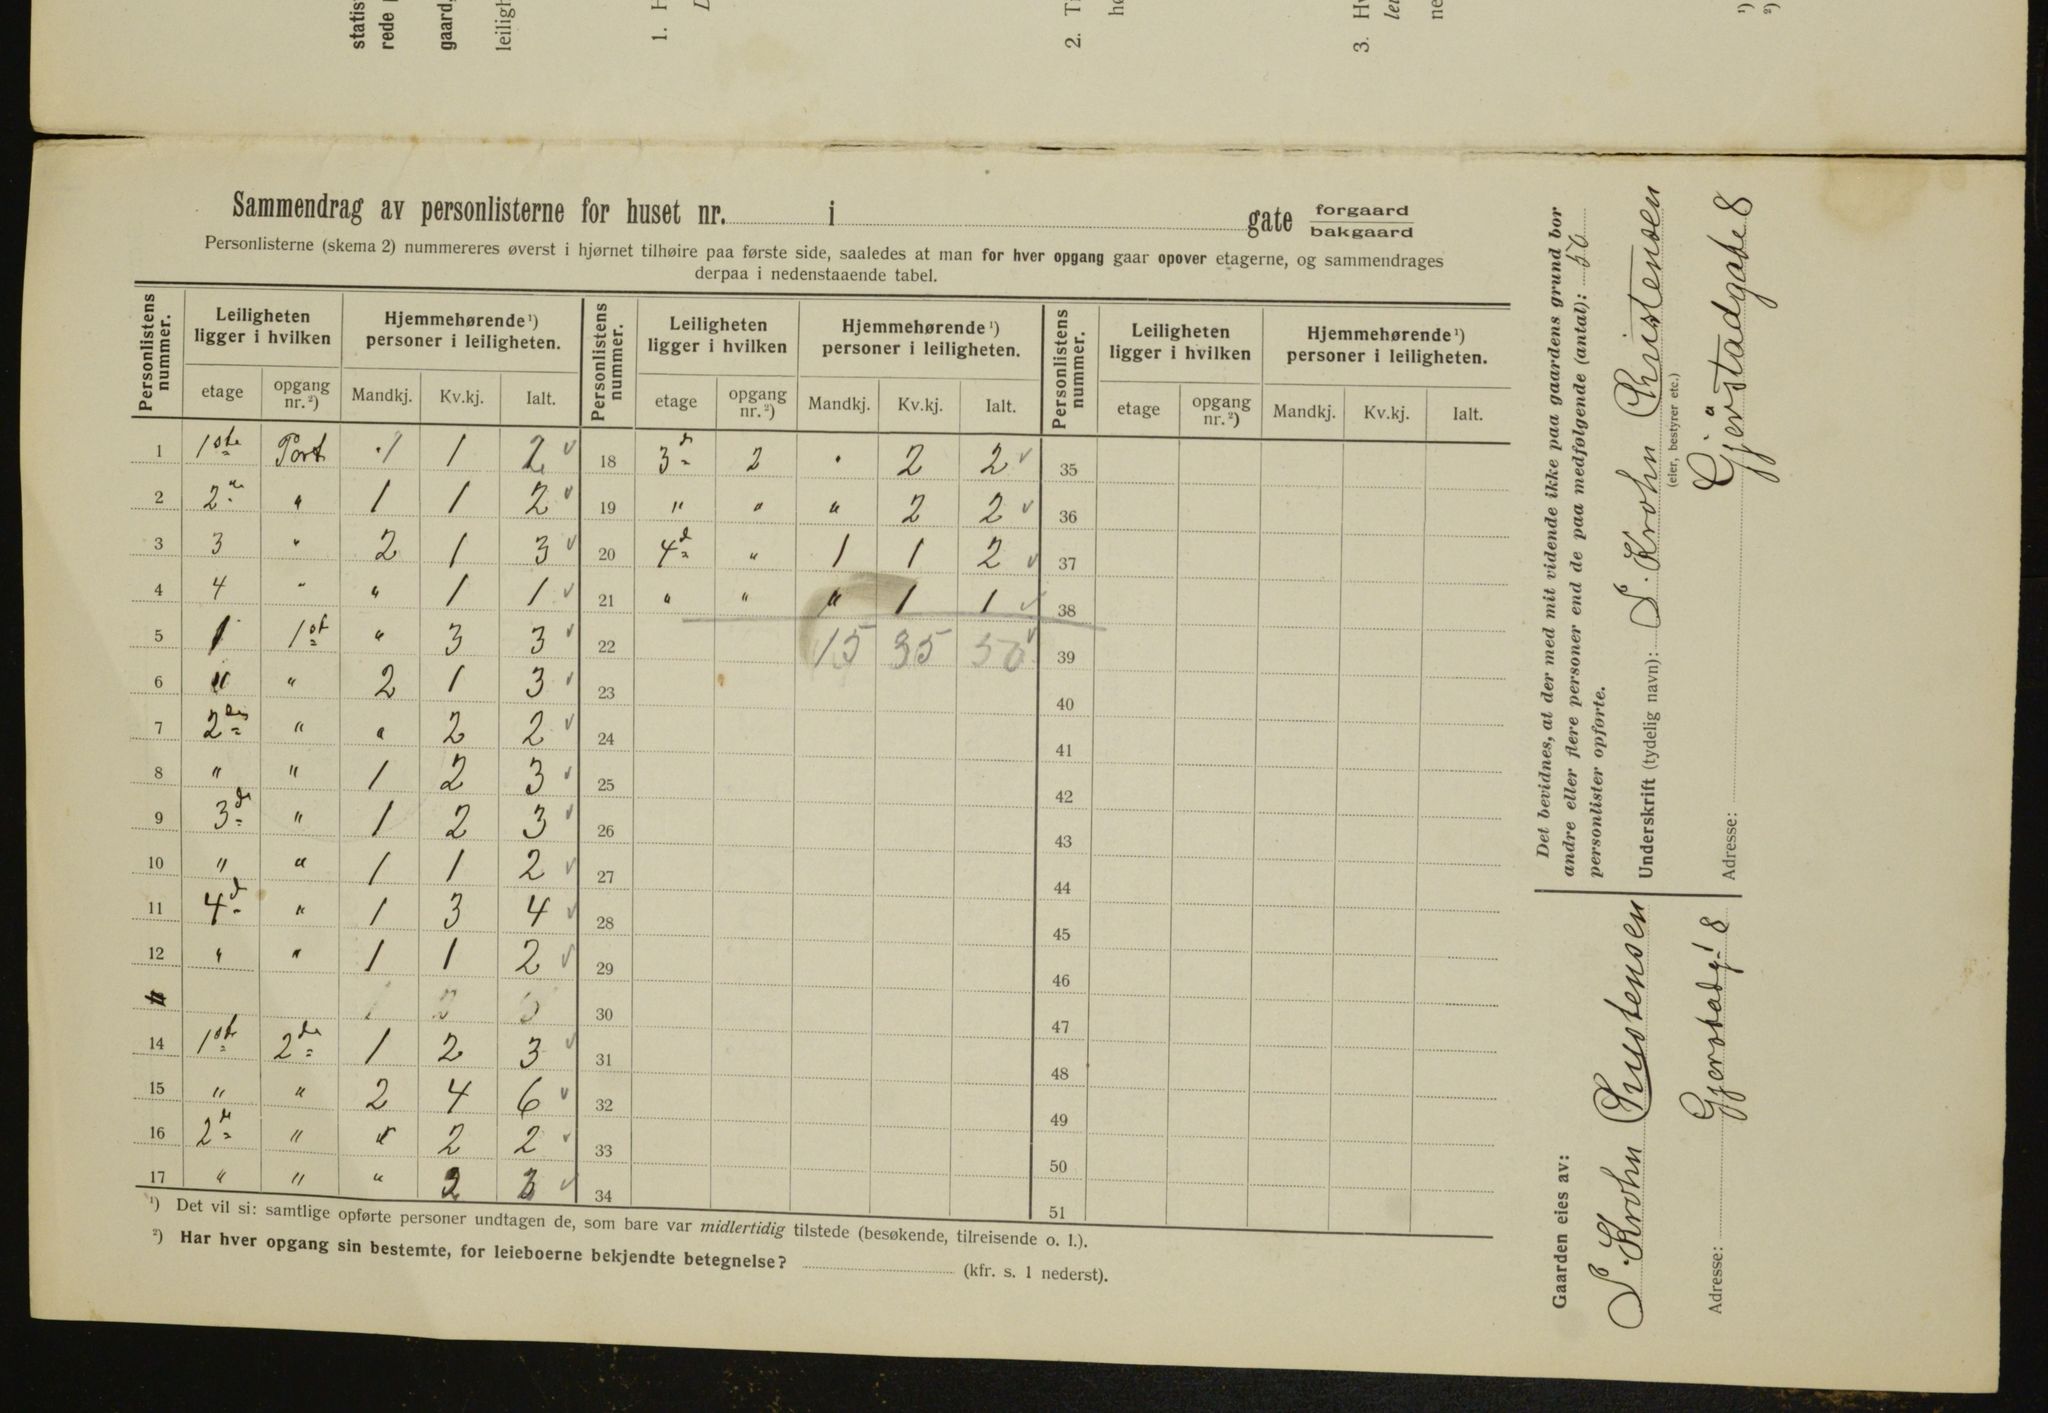 statis
rede
gaard,
leiligh
1. H
D
2. Ti
hø
3. Hv
lei
ne
¹)
²)
Sammendrag av personlisterne for huset nr. i gate forgaard bakgaard
Personlisterne (skema 2) nummereres øverst i hjørnet tilhøire paa første side, saaledes at man for hver opgang gaar opover etagerne, og sammendrages
derpaa i nedenstaaende tabel.
Personlistens nummer. Leiligheten ligger i hvilken Hjemmehørende¹) personer i leiligheten. Personlistens nummer. Leiligheten ligger i hvilken Hjemmehørende¹) personer i leiligheten. Personlistens nummer. Leiligheten ligger i hvilken Hjemmehørende¹) personer i leiligheten.
etage opgang nr.²) Mandkj. Kv.kj. Ialt. etage opgang nr.²) Mandkj. Kv.kj. Ialt. etage opgang nr.²) Mandkj. Kv.kj. Ialt.
1 1ste Port 1 1 2 ✓ 18 3d 2 · 2 2 ✓ 35
2 2de " 1 1 2 ✓ 19 " " " 2 2 ✓ 36
3 3 " 2 1 3 ✓ 20 4d " 1 1 2 ✓ 37
4 4 " " 1 1 ✓ 21 " " " 1 1 ✓ 38
5 1 1st " 3 3 ✓ 22 15 35 50 ✓ 39
6 " " 2 1 3 ✓ 23 40
7 2den " " 2 2 ✓ 24 41
8 " " 1 2 3 ✓ 25 42
9 3de " 1 2 3 ✓ 26 43
10 " " 1 1 2 ✓ 27 44
11 4d " 1 3 4 ✓ 28 45
12 " " 1 1 2 ✓ 29 46
30 47
14 1ste 2de 1 2 3 ✓ 31 48
15 " " 2 4 6 ✓ 32 49
16 2de " " 2 2 ✓ 33 50
17 " " " ✓ 34 51
¹) Det vil si: samtlige opførte personer undtagen de, som bare var midlertidig tilstede (besøkende, tilreisende o. l.).
²) Har hver opgang sin bestemte, for leieboerne bekjendte betegnelse? (kfr. s. 1 nederst).
Det bevidnes, at der med mit vidende ikke paa gaardens grund bor
andre eller flere personer end de paa medfølgende (antal): personlister opførte.
Underskrift (tydelig navn): S. Krohn Christensen
(eier, bestyrer etc.)
Adresse: Gjerstadgate 8
Gaarden eies av:
S. Krohn Christensen
Adresse: Gjerstadg. 8